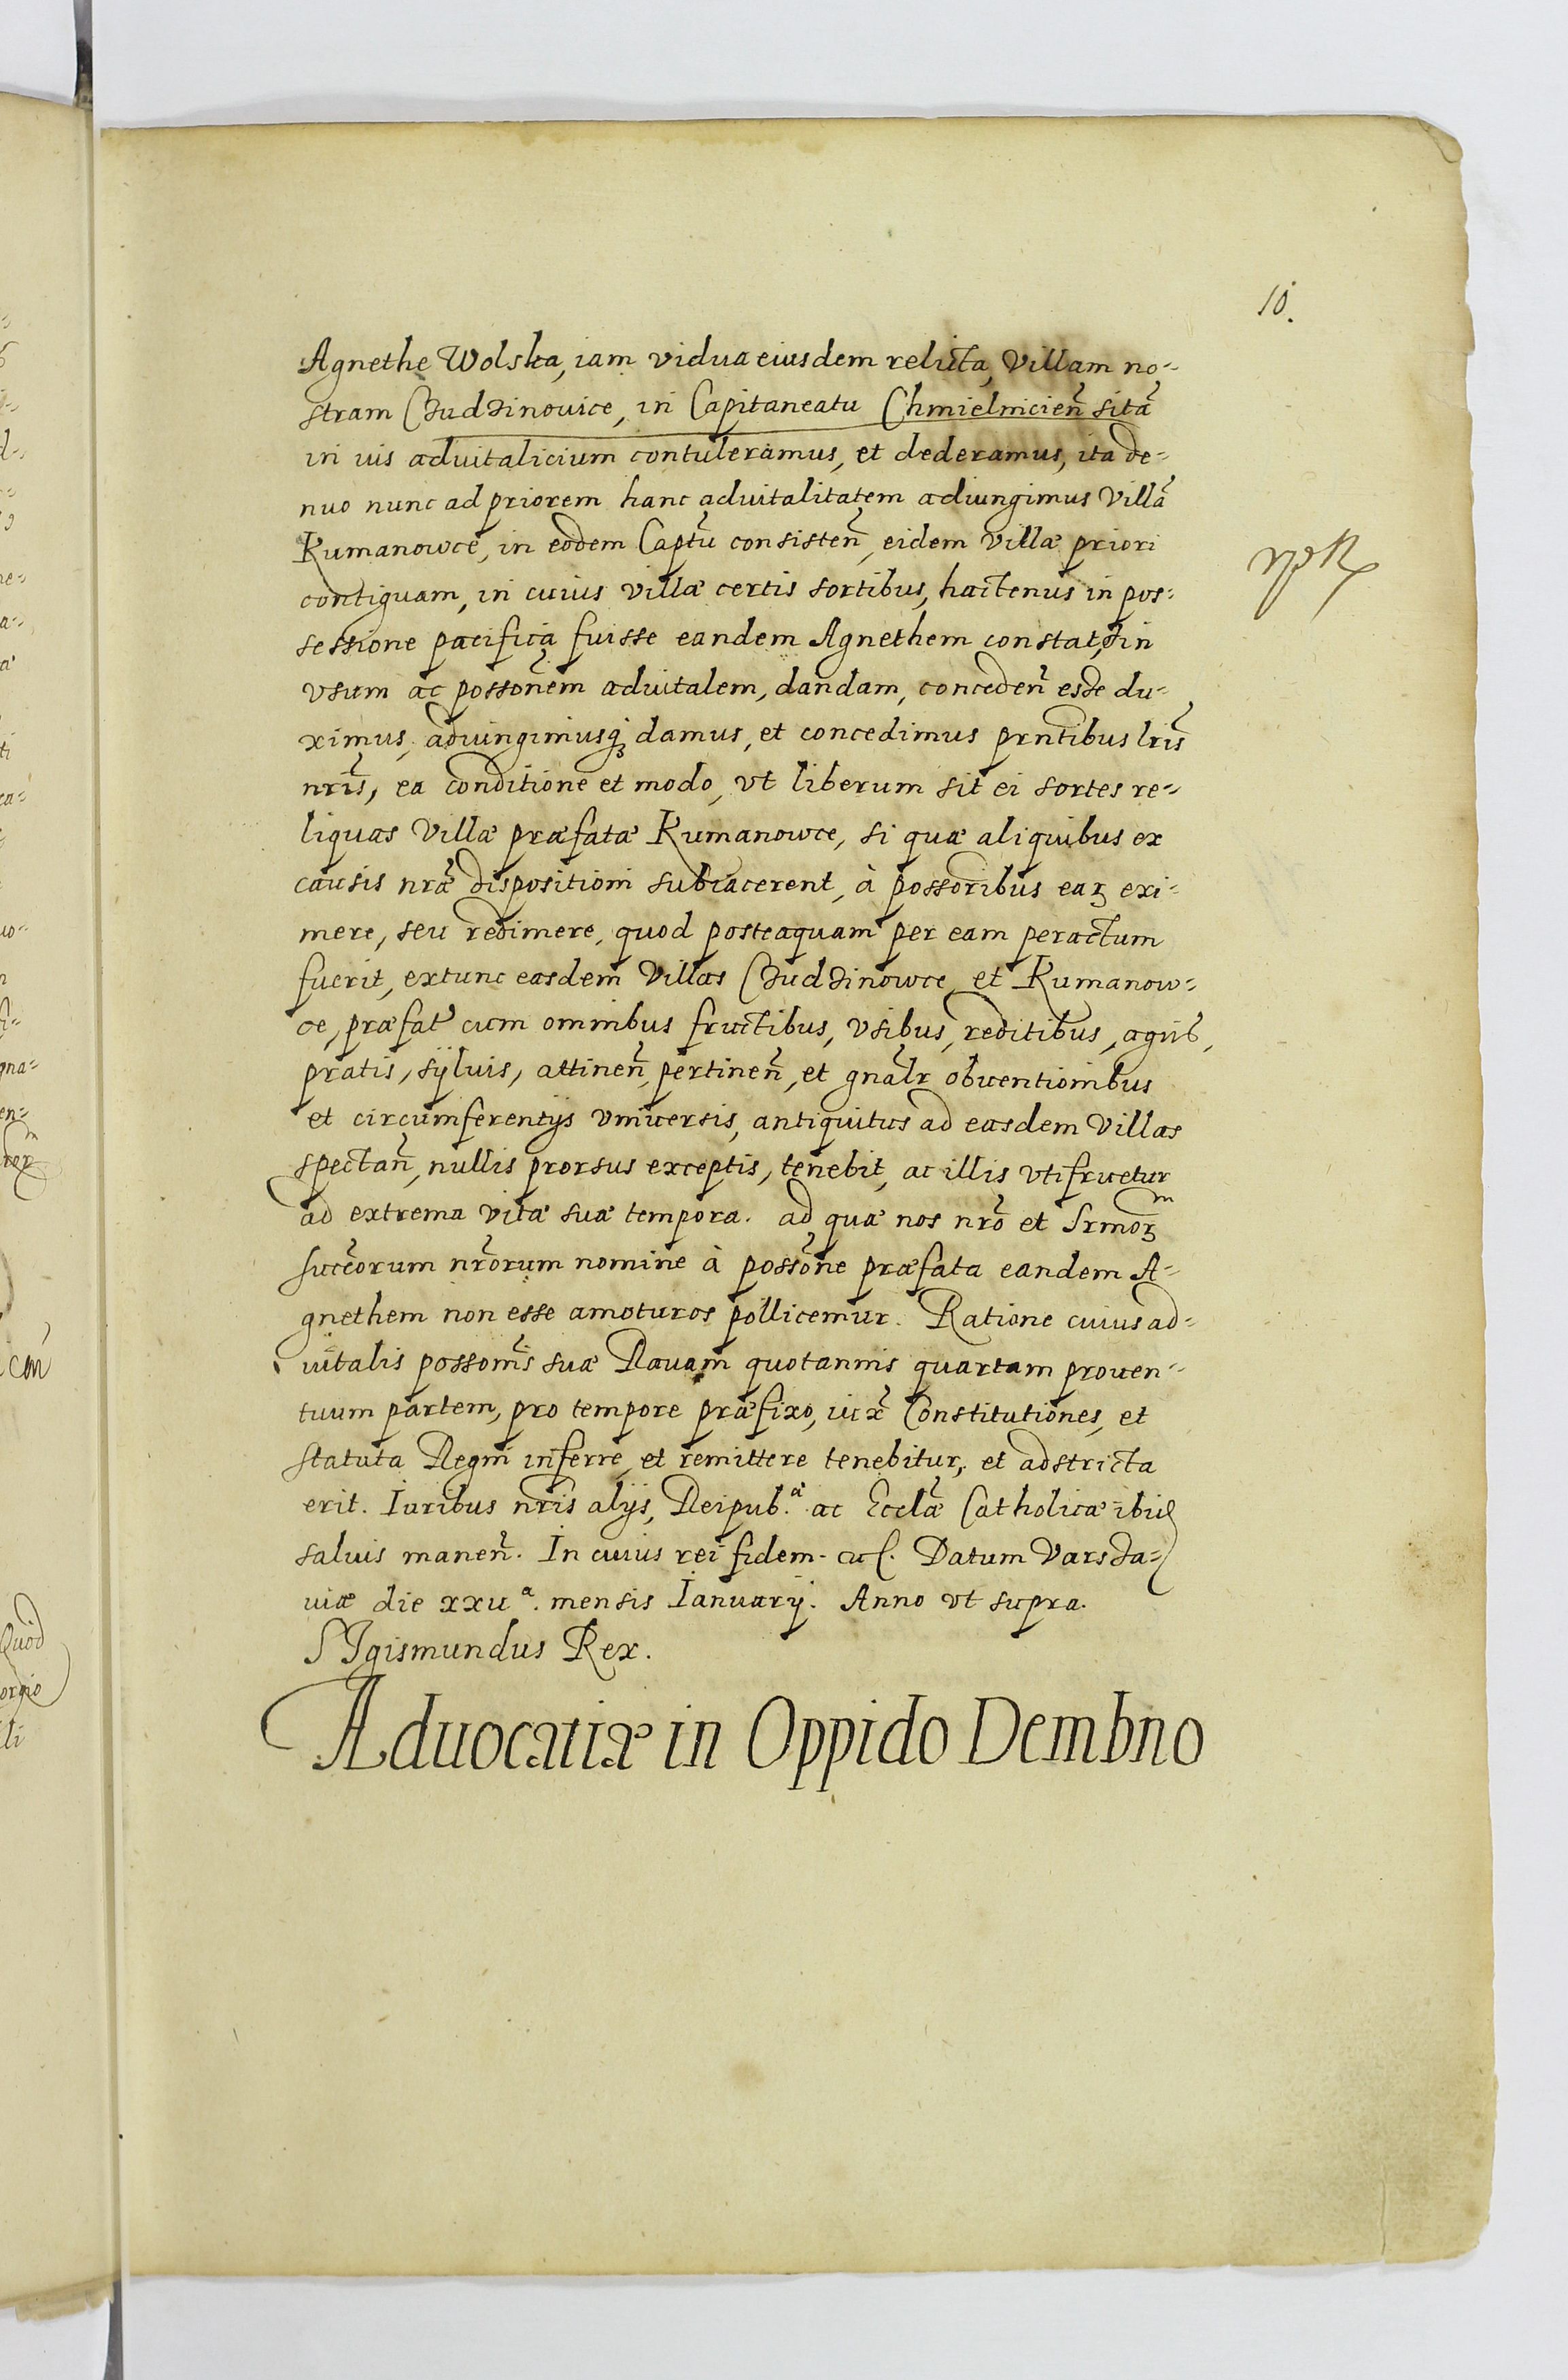 10.
Agnethe Wolska, iam vidua eiusdem relicta, Villam no-
stram Czudzinouice, in Capitaneatu Chmielnicien̄ sitā
in ius aduitalicium contuleramus, et dederamus, ita de-
nuo nunc ad priorem hanc aduitalitatem adiungimus Villā
Kumanowce, in eodem Captū consisten̄, eidem Villæ priori
contiguam, in cuius villæ certis sortibus, hactenus in pos-
sessione pacifica fuisse eandem Agnethem constat, in
vsum ac possonēm aduitalem, dandam, conceden̄ esse du-
ximus, adiungimusq₃ damus, et concedimus prntībus lrīs
nrīs, ea conditione et modo, vt liberum sit ei sortes re-
liquas Villæ præfatæ Kumanowce, si quæ aliquibus ex
causis nrǣ dispositioni subiacerent, à possorībus eaꝝ exi-
mere, seu redimere, quod posteaquam per eam peractum
fuerit, extunc easdem Villas Czudzinowce, et Kumanow-
ce, præfat̄ cum omnibus fructibus, vsibus, reditibus, agris,
pratis, syluis, attinen̄, pertinen̄, et gnālr obuentionibus
et circumferentijs vniuersis, antiquitus ad easdem Villas
spectan̄, nullis prorsus exceptis, tenebit, ac illis vtifruetur
ad extrema vitæ suæ tempora. ad quæ nos nrō et Srmoꝝ
succōrum nrōrum nomine à possōne præfata eandem A-
gnethem non esse amoturos pollicemur. Ratione cuius ad-
uitalis possonīs suæ Rauam quotannis quartam prouen-
tuum partem, pro tempore præfixo, iux̄ Constitutiones, et
statuta Regni inferre, et remittere tenebitur, et adstricta
erit. Iuribus nrīs alijs, Reipub.ᵃ ac Ecclǣ Catholicæ ibid
saluis manen̄. In cuius rei fidem. Datum Varssa-
uiæ die xxuᵃ. mensis Ianuarij. Anno vt supra.
SIgismundus Rex.
Aduocatiæ in Oppido Dembno